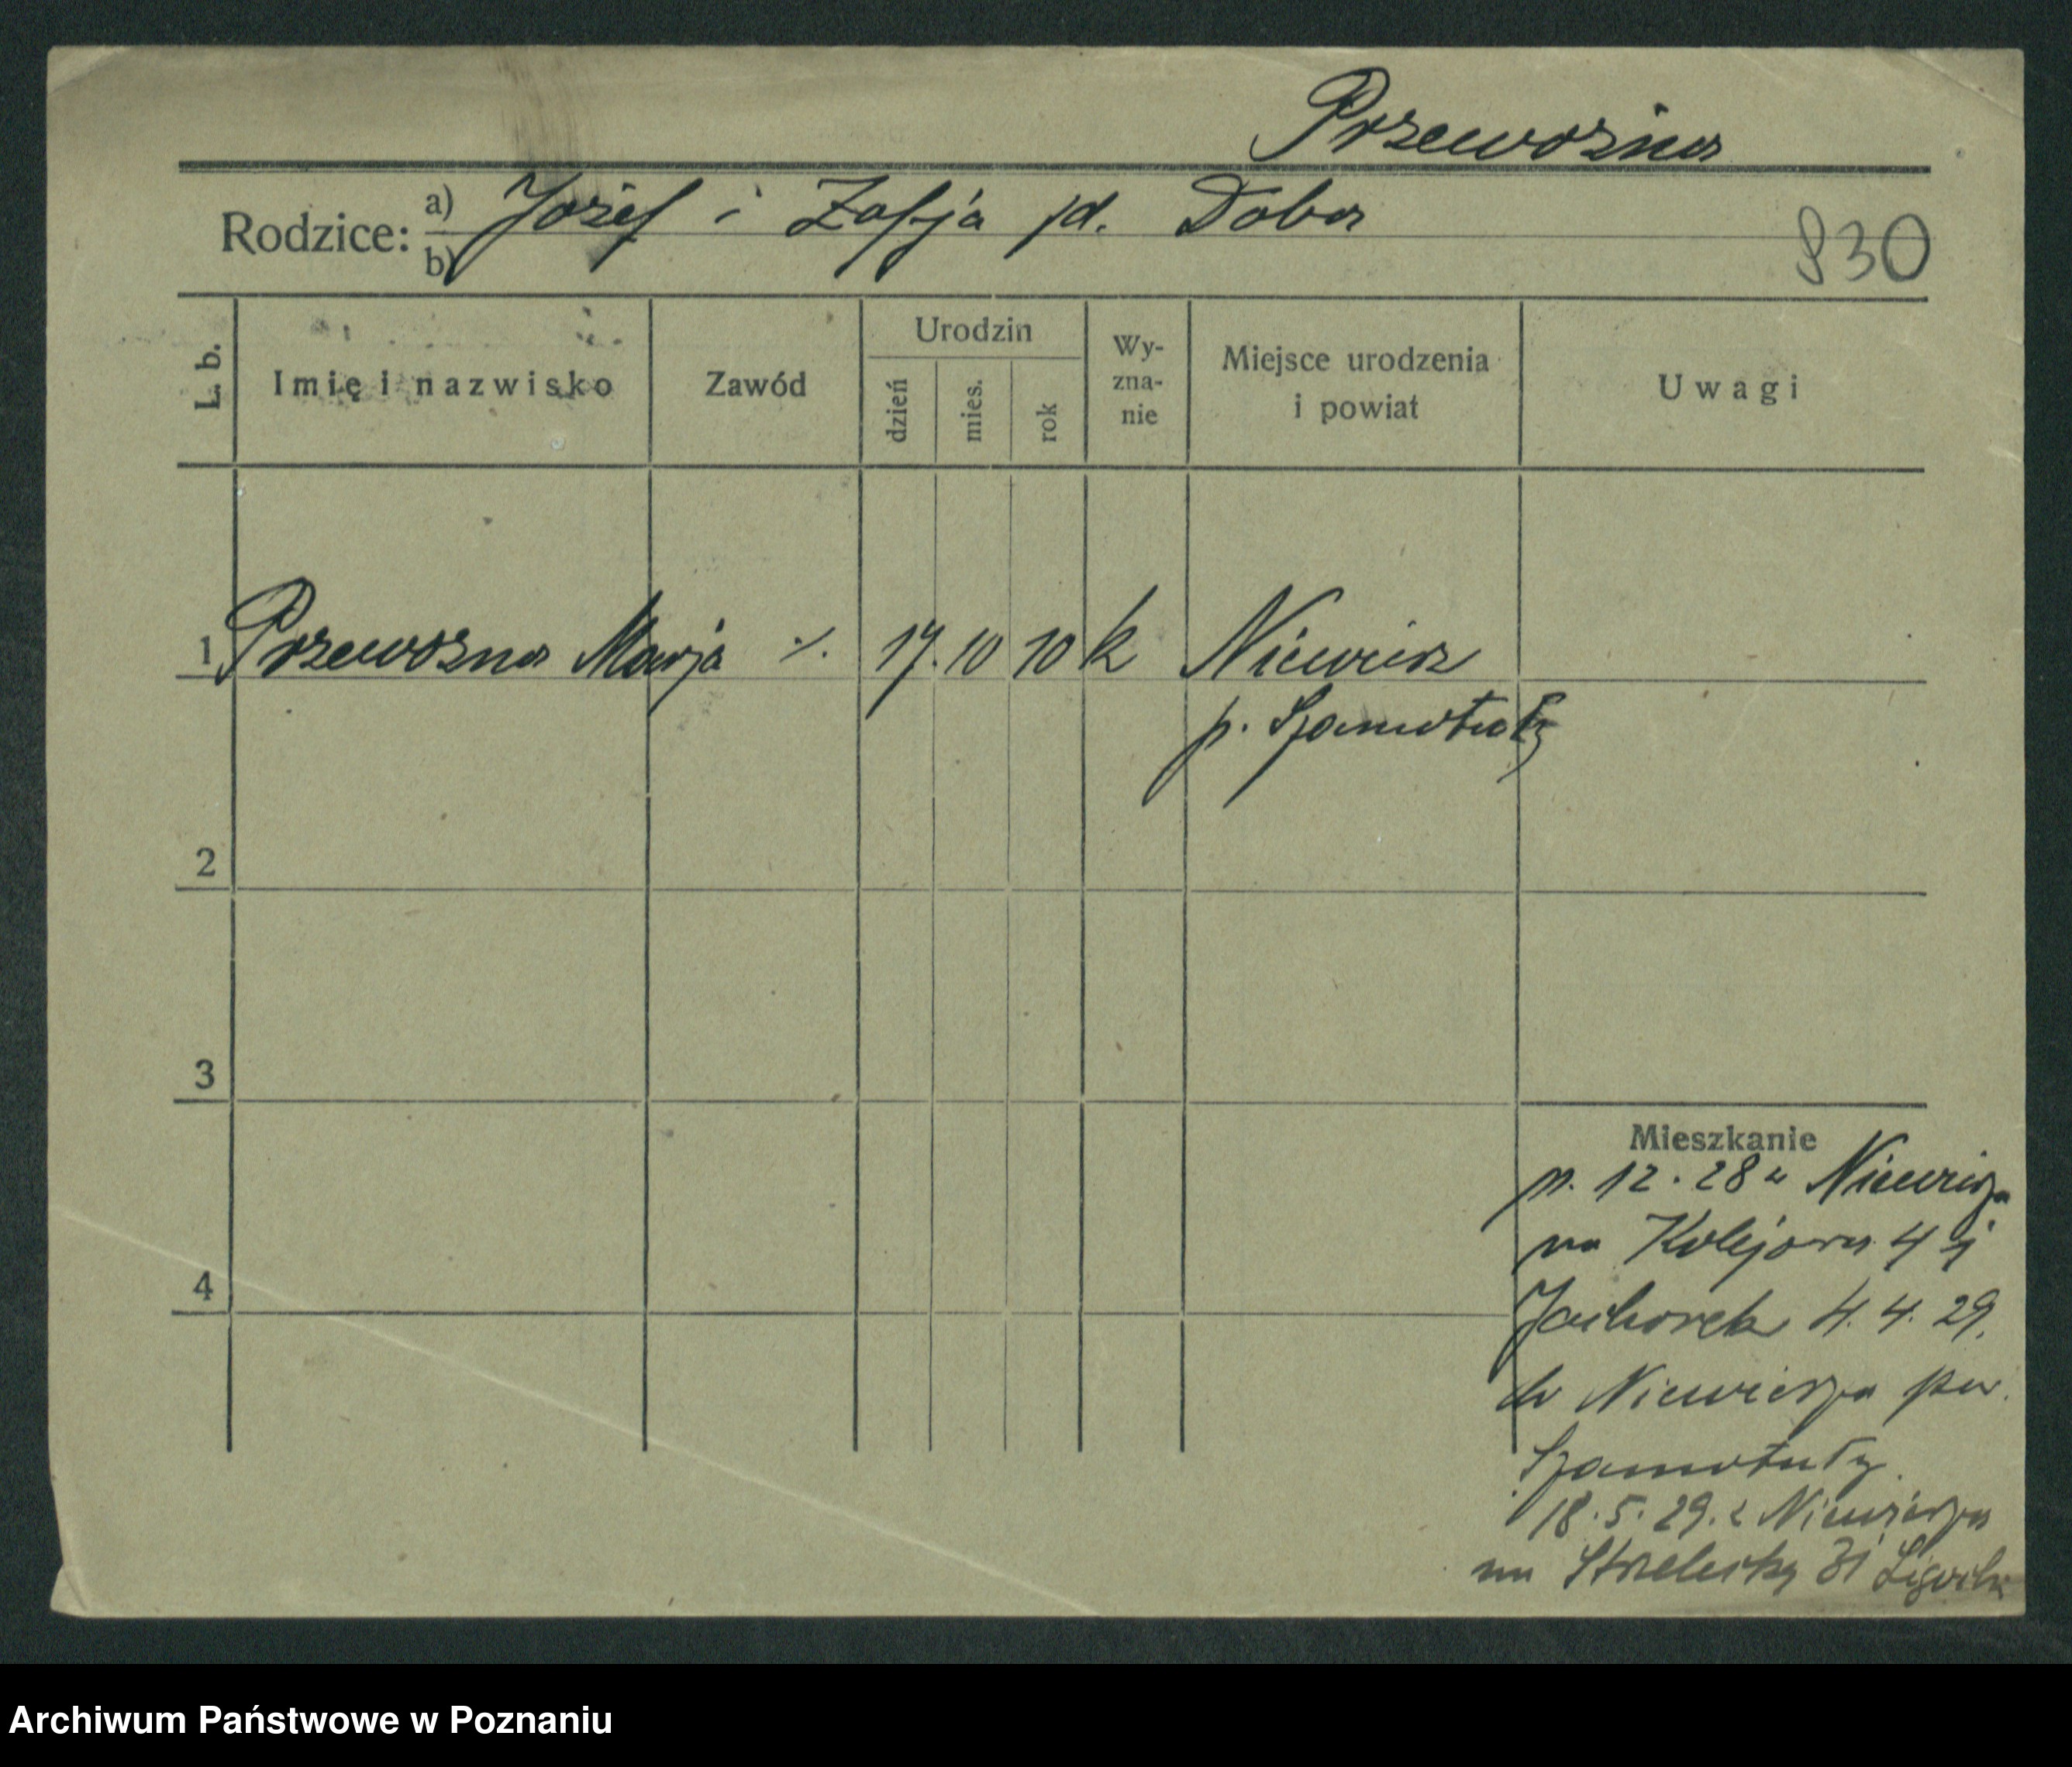 Przewoźna
Rodzice: a) Józef i Zofja /d. Doba
b)
830
L. b. Imię i nazwisko Zawód Urodzin dzień mies. rok Wy-zna-nie Miejsce urodzenia i powiat Uwagi
1 Przewoźna Marja ./. 17. 10 10 k Niewierz
p. Szamotuły
2
3
Mieszkanie
12.28 z Niewierza
na Kolejowa 4
4
4.4.29.
do Niewierza pow.
Szamotuły
18.5.29. z Niewierza
na Strzelecką 31
Archiwum Państwowe w Poznaniu